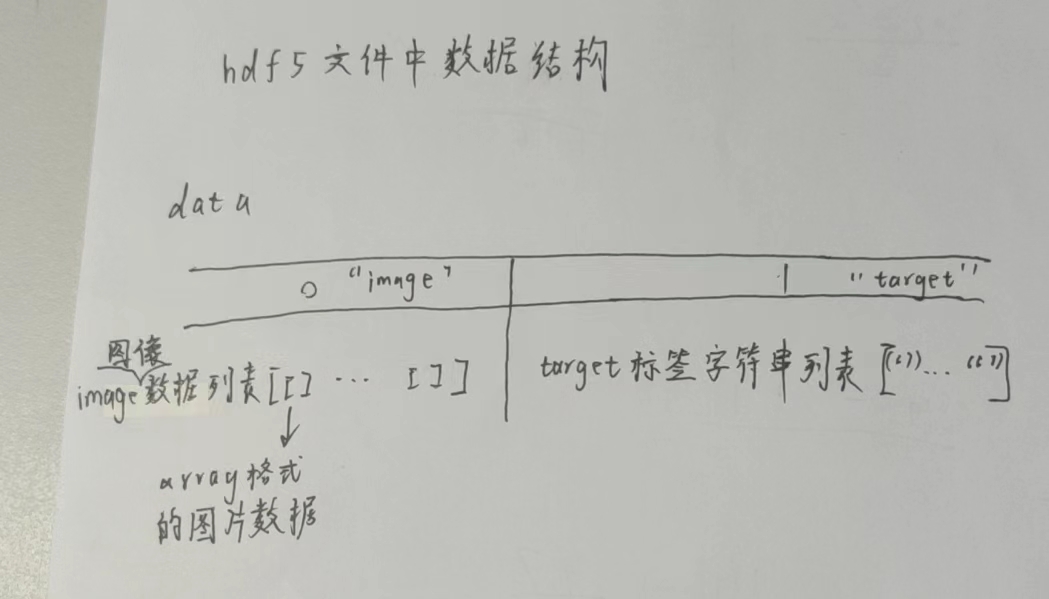 hdf5 文件中数据结构
data
0 "image" 1 "target"
图像
image数据列表[[] ... []] target标签字符串列表[""... ""]
array格式
的图片数据